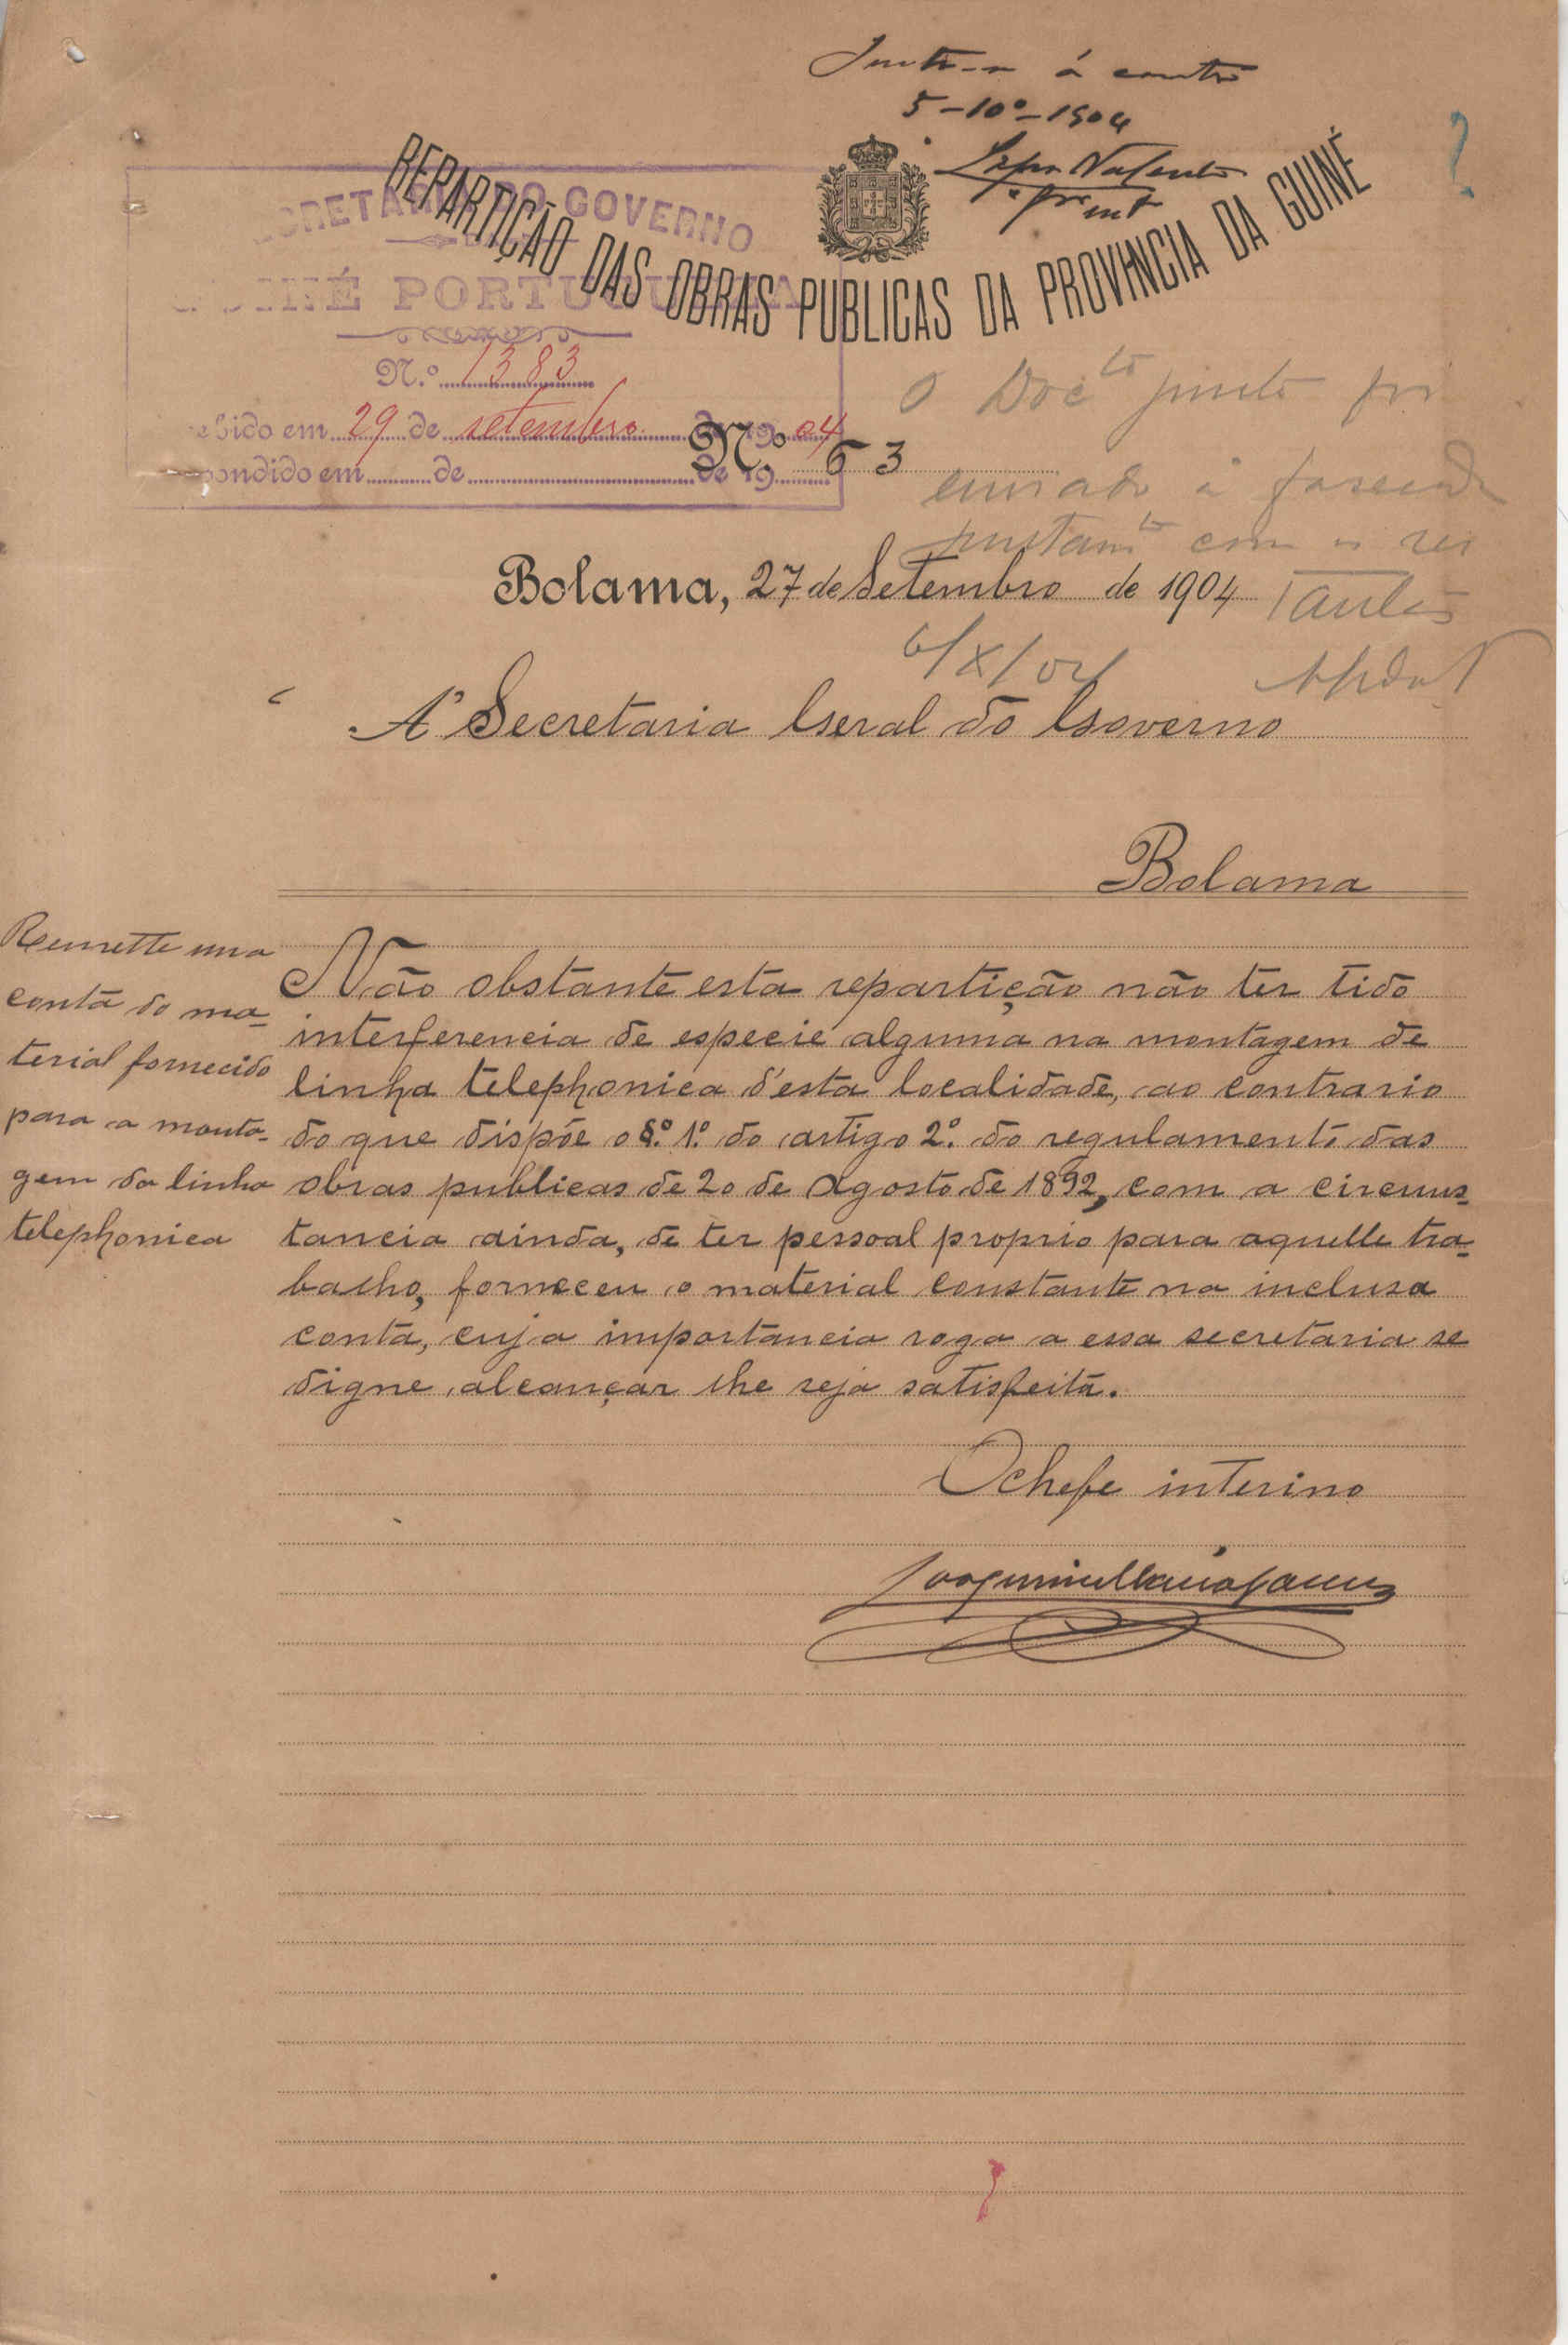 Junte-se á conta
5-10º-1904
REPARTIÇÃO DAS OBRAS PUBLICAS DA PROVINCIA DA GUINÉ
SECRETARIA DO GOVERNO
DA
GUINÉ PORTUGUEZA
N.º 1383
Recebido em 29 de setembro de 1904
Respondido em de de 19
N.º 63
O Docto junto foi
enviado á fazenda
juntamte com os res
tantes
6/X/04
Bolama, 27 de Setembro de 1904
A' Secretaria Geral do Governo
Bolama
Remette uma
conta do ma-
terial fornecido
para a monta-
gem da linha
telephonica
Não obstante esta repartição não ter tido
interferencia de especie alguma na montagem de
linha telephonica d'esta localidade, ao contrario
do que dispõe o §.º 1.º do artigo 2.º do regulamento das
obras publicas de 20 de Agosto de 1892, com a circums-
tancia ainda, de ter pessoal proprio para aquelle tra-
balho, forneceu o material constante na inclusa
conta, cuja importancia roga a essa secretaria se
digne alcançar lhe seja satisfeita.
O chefe interino